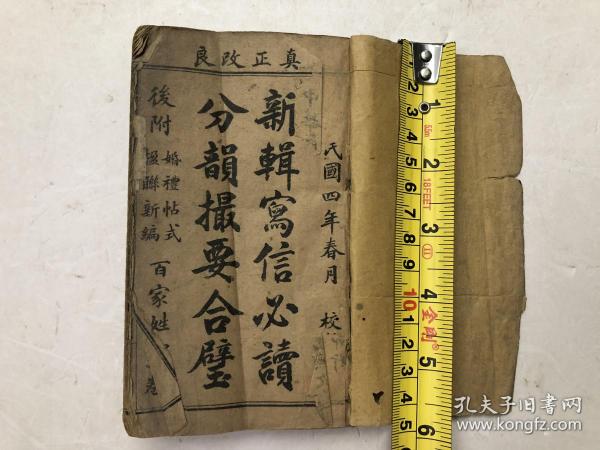 真正改良
民國四年春月 校
新輯寫信必讀
分韻撮要合璧
後附 婚禮帖式
楹聯新編
百家姓
1
2
3
4
5
6
5.5m
18FEET
11
1
2
3
4
5
6
7
8
9
10
1
2
3
4
5
金剛®
孔夫子旧书网
www.kongfz.com